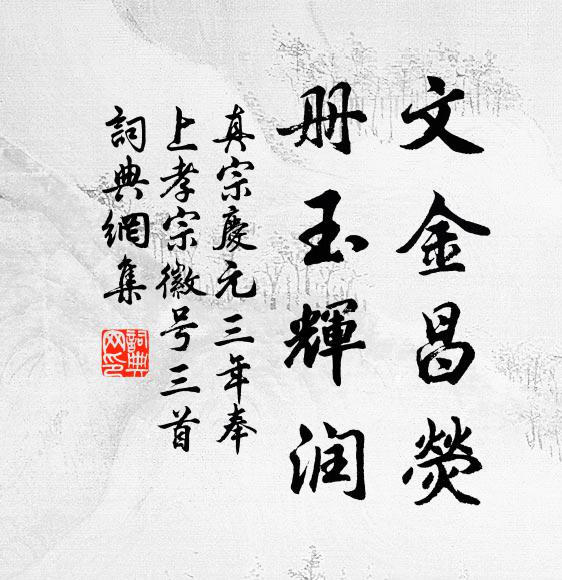 文金昌熒
册玉輝润
真宗慶元三年奉
上孝宗徽号三首
詞典網集
詞典
网印